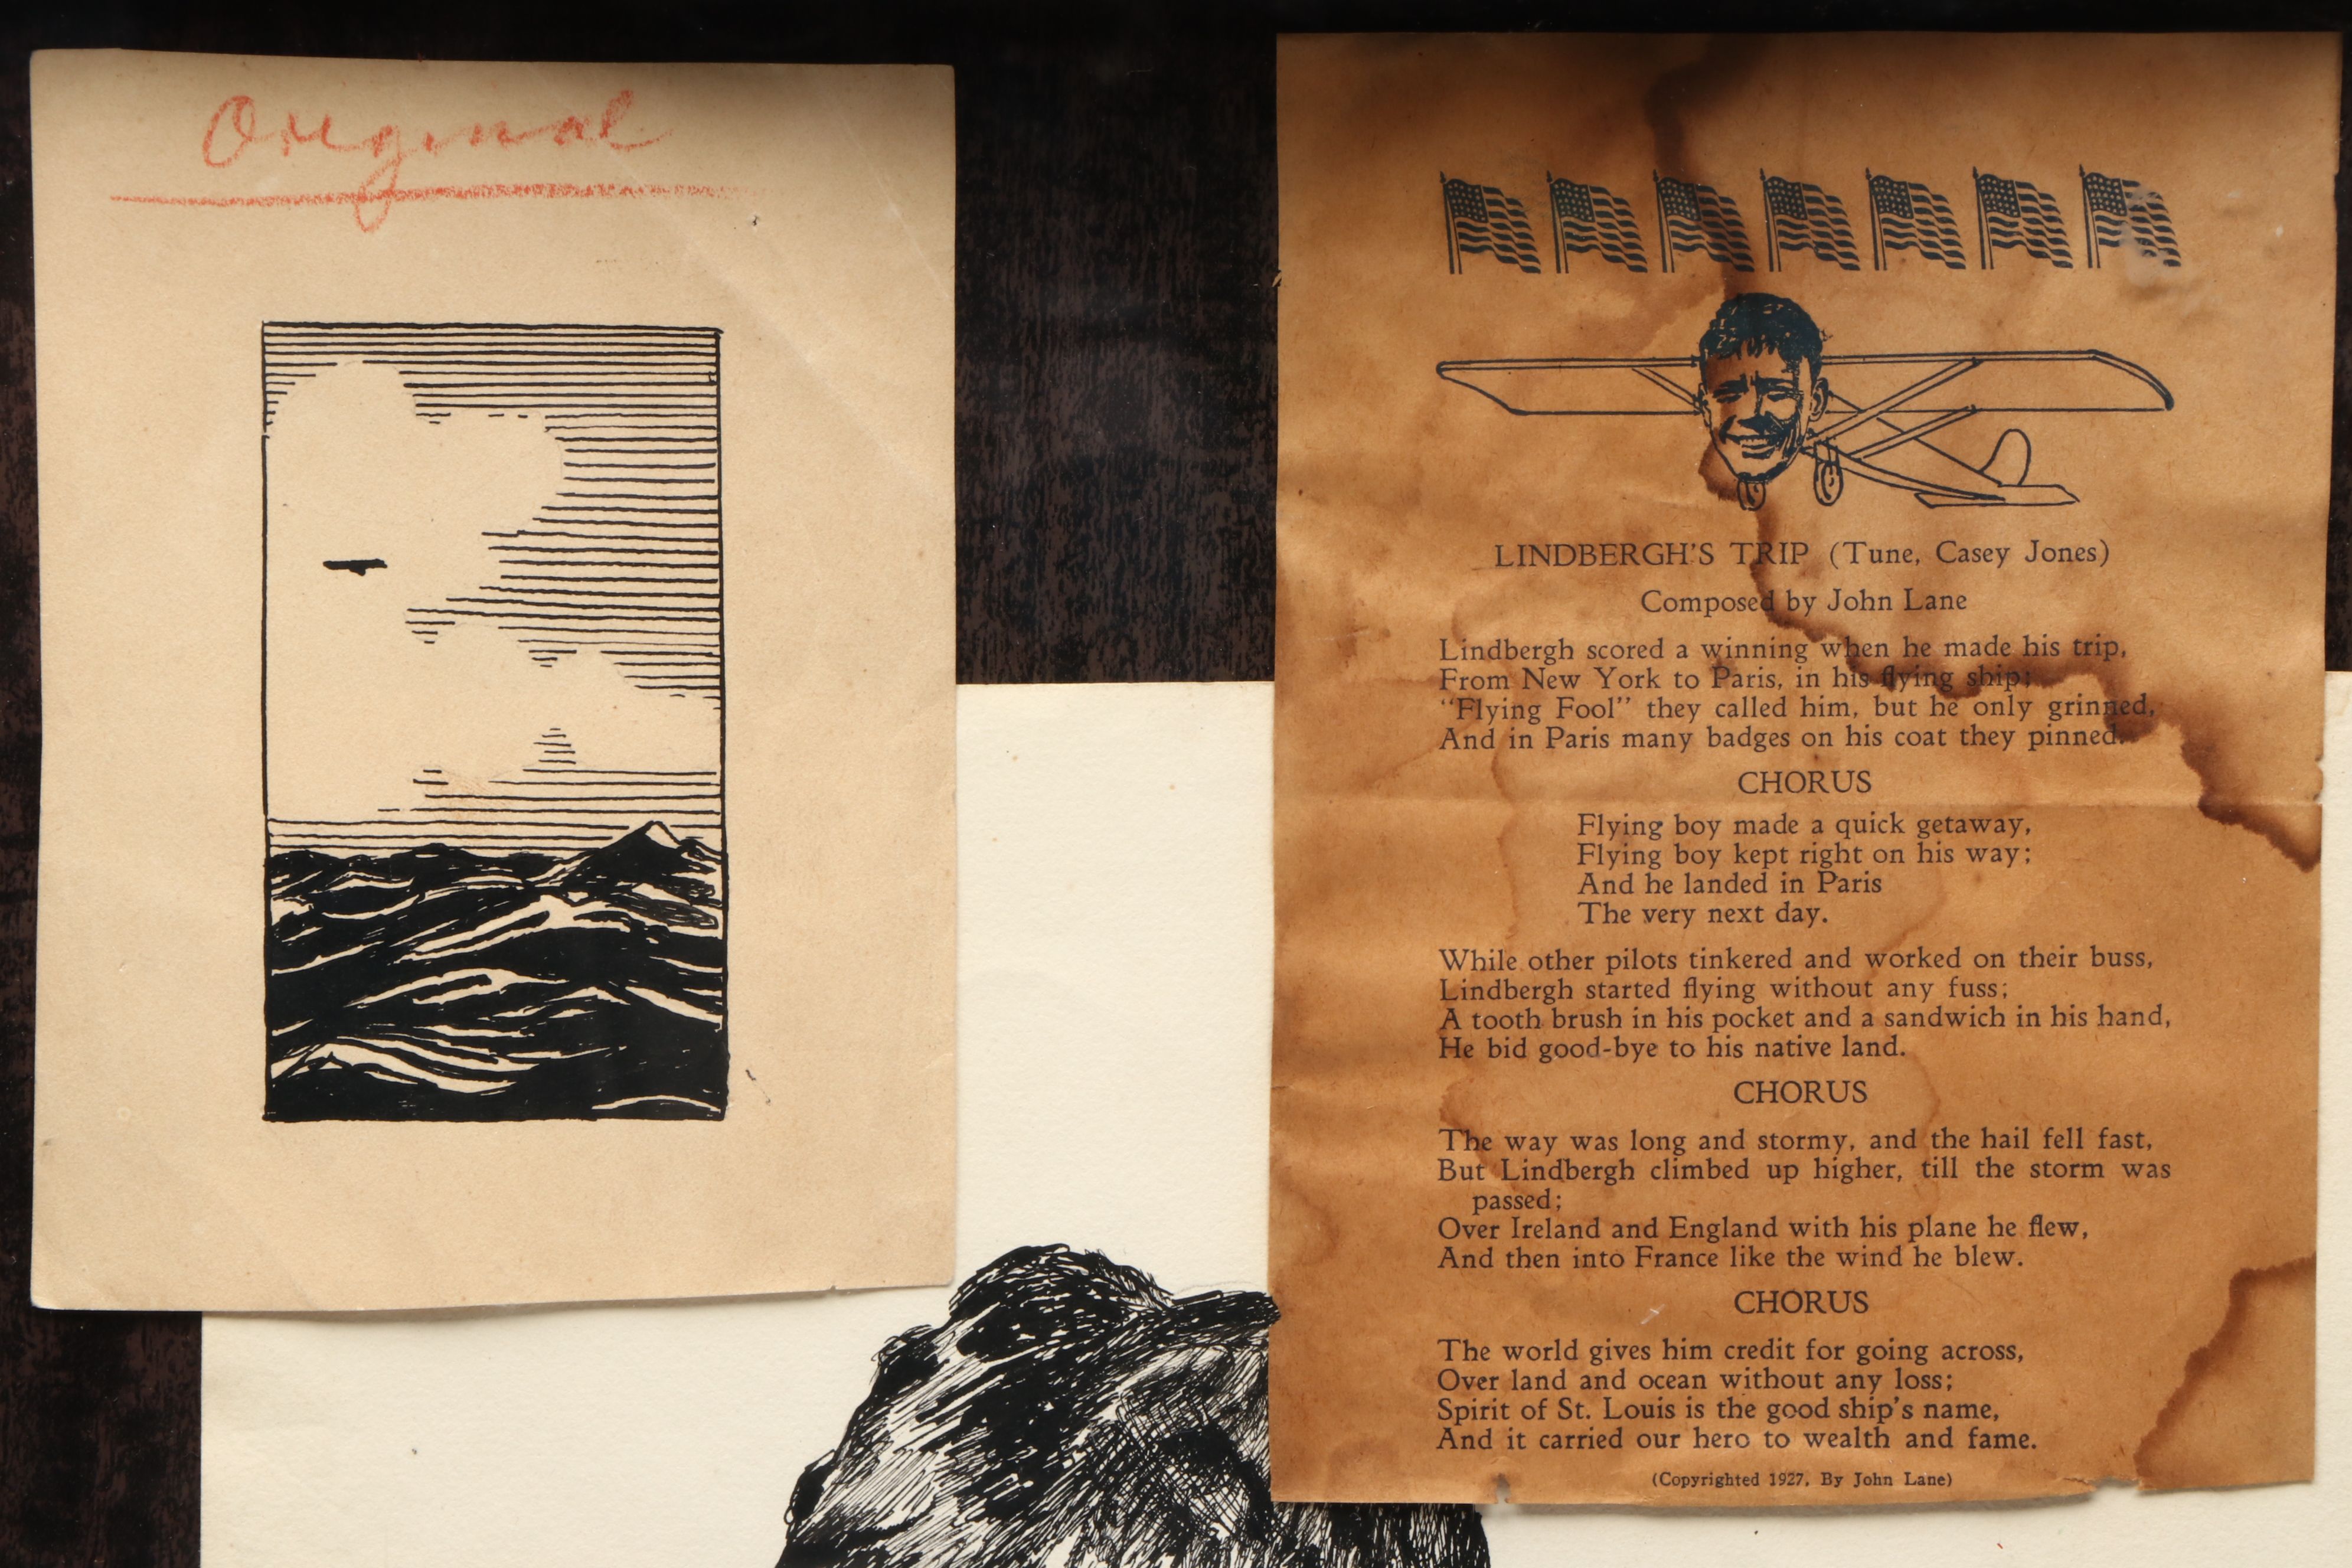 Original
LINDBERGH'S TRIP (Tune, Casey Jones)
Composed by John Lane
Lindbergh scored a winning when he made his trip,
From New York to Paris, in his flying ship;
"Flying Fool" they called him, but he only grinned,
And in Paris many badges on his coat they pinned.
CHORUS
Flying boy made a quick getaway,
Flying boy kept right on his way;
And he landed in Paris
The very next day.
While other pilots tinkered and worked on their buss,
Lindbergh started flying without any fuss;
A tooth brush in his pocket and a sandwich in his hand,
He bid good-bye to his native land.
CHORUS
The way was long and stormy, and the hail fell fast,
But Lindbergh climbed up higher, till the storm was
passed;
Over Ireland and England with his plane he flew,
And then into France like the wind he blew.
CHORUS
The world gives him credit for going across,
Over land and ocean without any loss;
Spirit of St. Louis is the good ship's name,
And it carried our hero to wealth and fame.
(Copyrighted 1927, By John Lane)